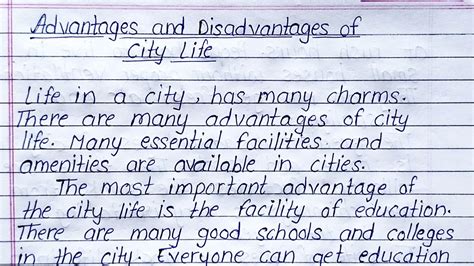 Advantages and Disadvantages of
City Life
Life in a city, has many charms.
There are many advantages of city
life. Many essential facilities and
amenities are available in cities.
The most important advantage of
the city life is the facility of education.
There are many good schools and colleges
in the city. Everyone can get education